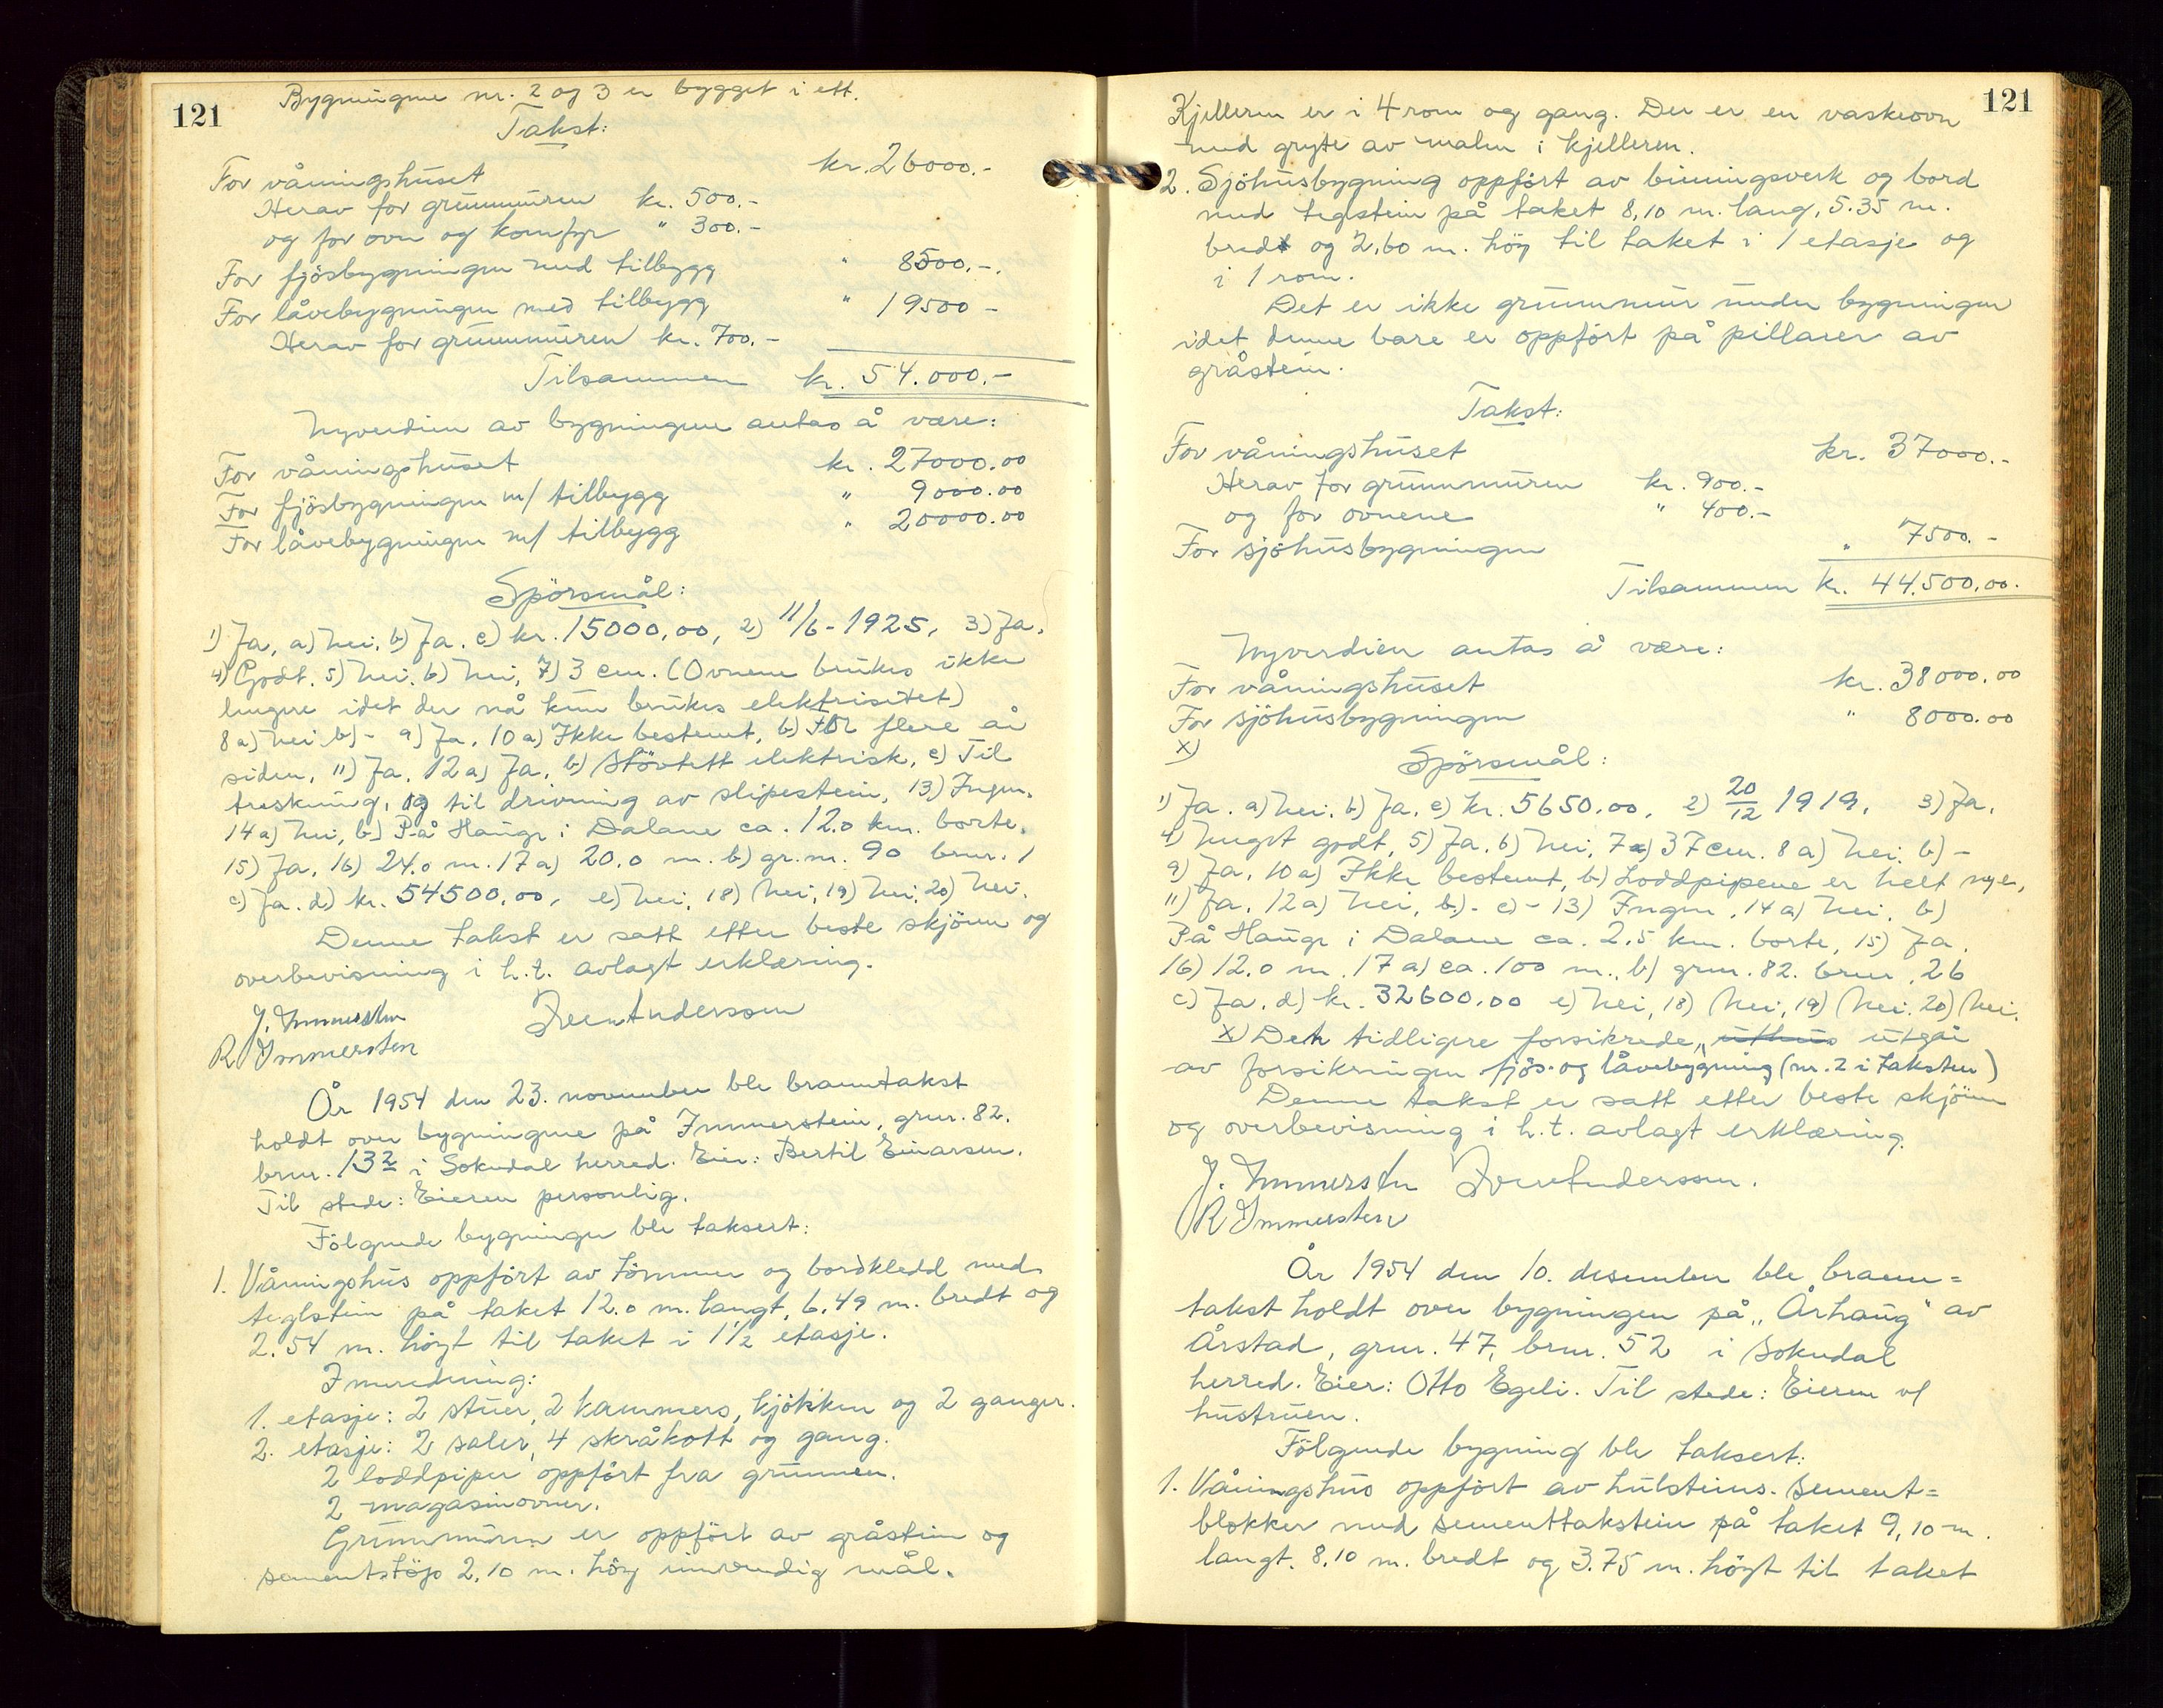 121
Bygningene nr. 2 og 3 er bygget i ett.
Takst:
For våningshuset kr. 26000.-
Herav for grunnmuren kr. 500.-
og for ovn og komfyr " 300.-
For fjösbygningen med tilbygg " 8500.-.
For låvebygningen med tilbygg " 19500 -
Herav for grunnmuren kr. 700.-
Tilsammen kr. 54.000.-
Nyverdien av bygningene antas å være:
For våningshuset kr. 27000.00
For fjösbygningen m/ tilbygg " 9000.00
For låvebygningen m/ tilbygg " 20000.00
Spörsmål:
1) Ja, a) Nei. b) Ja. c) kr. 15000,00, 2) 11/6 - 1925, 3) Ja.
4) Godt. 5) Nei. 6) Nei, 7) 3 cm. (Ovnene brukes ikke
lengere idet der nå kun brukes elektrisitet)
8 a) Nei b) - 9) Ja, 10 a) Ikke bestemt, b) For flere år
siden, 11) Ja, 12 a) Ja, b) Stövtett elektrisk, c) Til
treskning, og til drivning av slipestein, 13) Ingen.
14 a) Nei, b) På Hauge i Dalane ca. 12.0 km. borte.
15) Ja, 16) 24.0 m. 17 a) 20.0 m. b) gr.nr. 90 brnr. 1
c) Ja. d) kr. 54500,00, e) Nei, 18) Nei, 19) Nei, 20) Nei.
Denne takst er satt etter beste skjönn og
overbevisning i h.t. avlagt erklæring.
J. Immerstein Iver Anderssen
R Immerstein
År 1954 den 23. november ble branntakst
holdt over bygningene på Immerstein, grnr. 82.
brnr. 132 i Sokndal herred. Eier: Bertil Einarsen.
Til stede: Eieren personlig.
Fölgende bygninger ble taksert:
1. Våningshus oppfört av tömmer og bordkledd med
teglstein på taket 12.0 m. langt, 6,49 m. bredt og
2.54 m. höyt til taket i 1 1/2 etasje.
Innredning:
1. etasje: 2 stuer, 2 kammers, kjökken og 2 ganger.
2. etasje: 2 saler, 4 skråkott og gang.
2 loddpiper oppfört fra grunnen.
2 magasinovner.
Grunnmuren er oppfört av gråstein og
sementstöp 2,10 m. höy innvendig mål.
121
Kjelleren er i 4 rom og gang. Der er en vaskeovn
med gryte av malm i kjelleren.
2. Sjöhusbygning oppfört av binningsverk og bord
med teglstein på taket 8,10 m. lang, 5.35 m.
bred og 2,60 m. höy til taket i 1 etasje og
i 1 rom.
Det er ikke grunnmur under bygningen
idet denne bare er oppfört på pillarer av
gråstein.
Takst:
For våningshuset kr. 37000.-
Herav for grunnmuren kr. 900.-
og for ovnene " 400.-
For sjöhusbygningen " 7500.-
Tilsammen kr. 44.500,00.
Nyverdien antas å være:
For våningshuset kr. 38000.00
For sjöhusbygningen " 8000.00
x)
Spörsmål:
1) Ja. a) Nei. b) Ja, c) kr. 5650,00, 2) 20/12 1919, 3) Ja.
4) Meget godt, 5) Ja. 6) Nei, 7) 37 cm. 8 a) Nei. b) -
9) Ja, 10 a) Ikke bestemt, b) Loddpipene er helt nye,
11) Ja, 12 a) Nei, b) - c) - 13) Ingen, 14 a) Nei, b)
På Hauge i Dalane ca. 2,5 km. borte, 15) Ja,
16) 12.0 m. 17 a) ca. 100 m., b) grnr. 82. brnr. 26
c) Ja. d) kr. 32600,00 e) Nei, 18) Nei, 19) Nei. 20) Nei.
x) Den tidligere forsikrede, uthus utgår
av forsikringen fjös- og låvebygning (nr. 2 i taksten)
Denne takst er satt etter beste skjönn
og overbevisning i h.t. avlagt erklæring.
J. Immerstein Iver Anderssen.
R Immerstein
År 1954 den 10. desember ble brann=
takst holdt over bygningen på "Århaug" av
Årstad, grnr. 47, brnr. 52 i Sokndal
herred. Eier: Otto Egeli. Til stede: Eieren v/
hustruen.
Fölgende bygning ble taksert:
1. Våningshus oppfört av hulsteins. sement=
blokker med sementtakstein på taket 9,10 m.
langt. 8,10 m. bredt og 3.75 m. höyt til taket